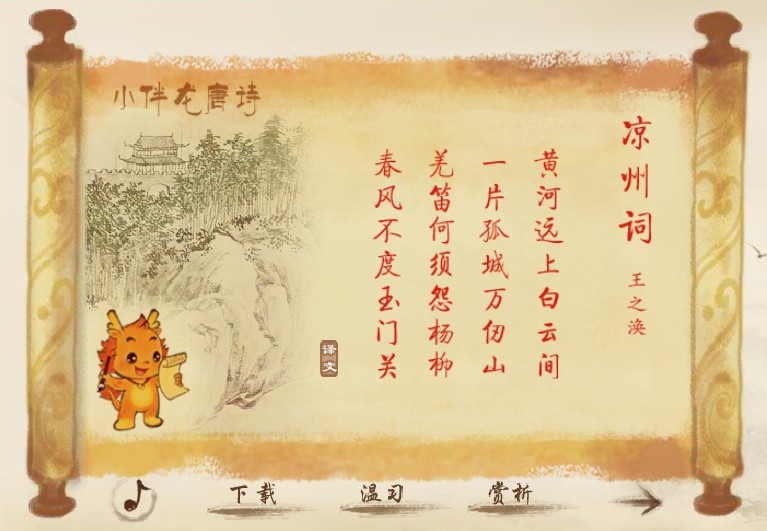 小伴龙唐诗
凉州词
王之涣
黄河远上白云间
一片孤城万仞山
羌笛何须怨杨柳
春风不度玉门关
译文
下载
温习
赏析